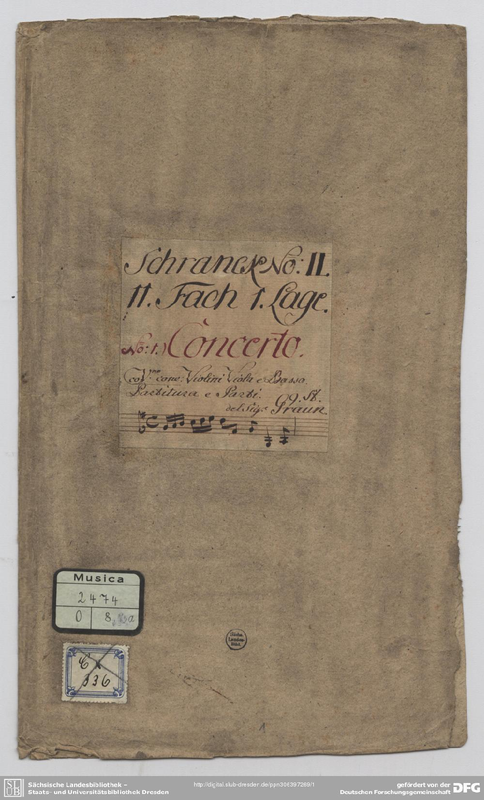 Schranck No: II.
11. Fach 1. Lage.
No: 1.) Concerto.
co V.no conc: Violini Viola e Basso
Partitura e Parti. 9. St.
del Sigr. Graun.
Musica
2474
O 8
Cx
836
Sächs.
Landes-
Bibl.
1
Sächsische Landesbibliothek –
Staats- und Universitätsbibliothek Dresden
http://digital.slub-dresden.de/ppn306397269/1
gefördert von der
Deutschen Forschungsgemeinschaft
DFG